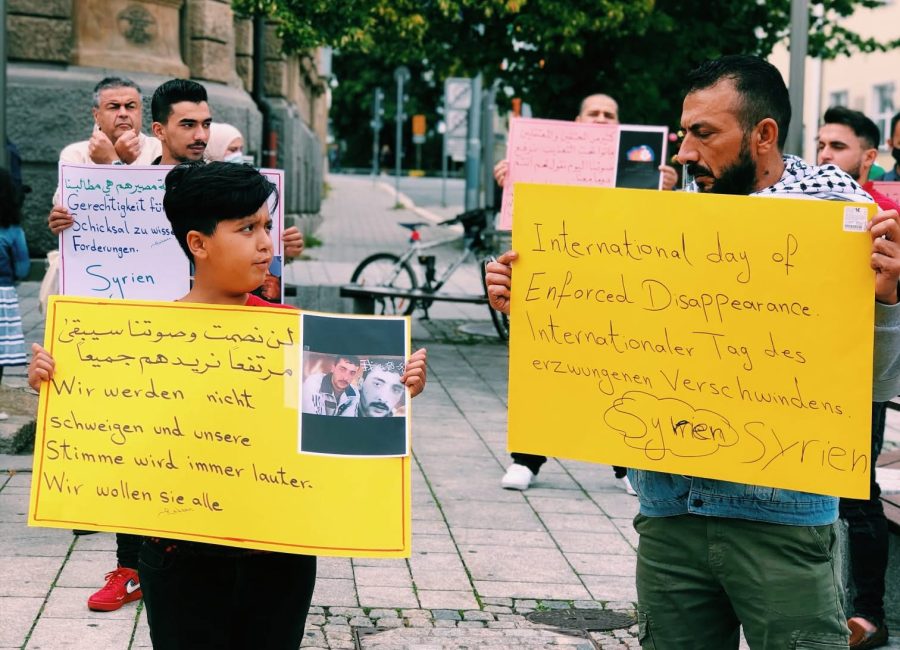 مصيرهم هي مطالبنا
Gerechtigkeit für
Schicksal zu wisse
Forderungen.
Syrien
لن نصمت وصوتنا سيبقى
مرتفعا نريدهم جميعا
Wir werden nicht
schweigen und unsere
Stimme wird immer lauter.
Wir wollen sie alle
صوتنا اليوم
International day of
Enforced Disappearance.
Internationaler Tag des
erzwungenen Verschwindens.
Syrien Syrien